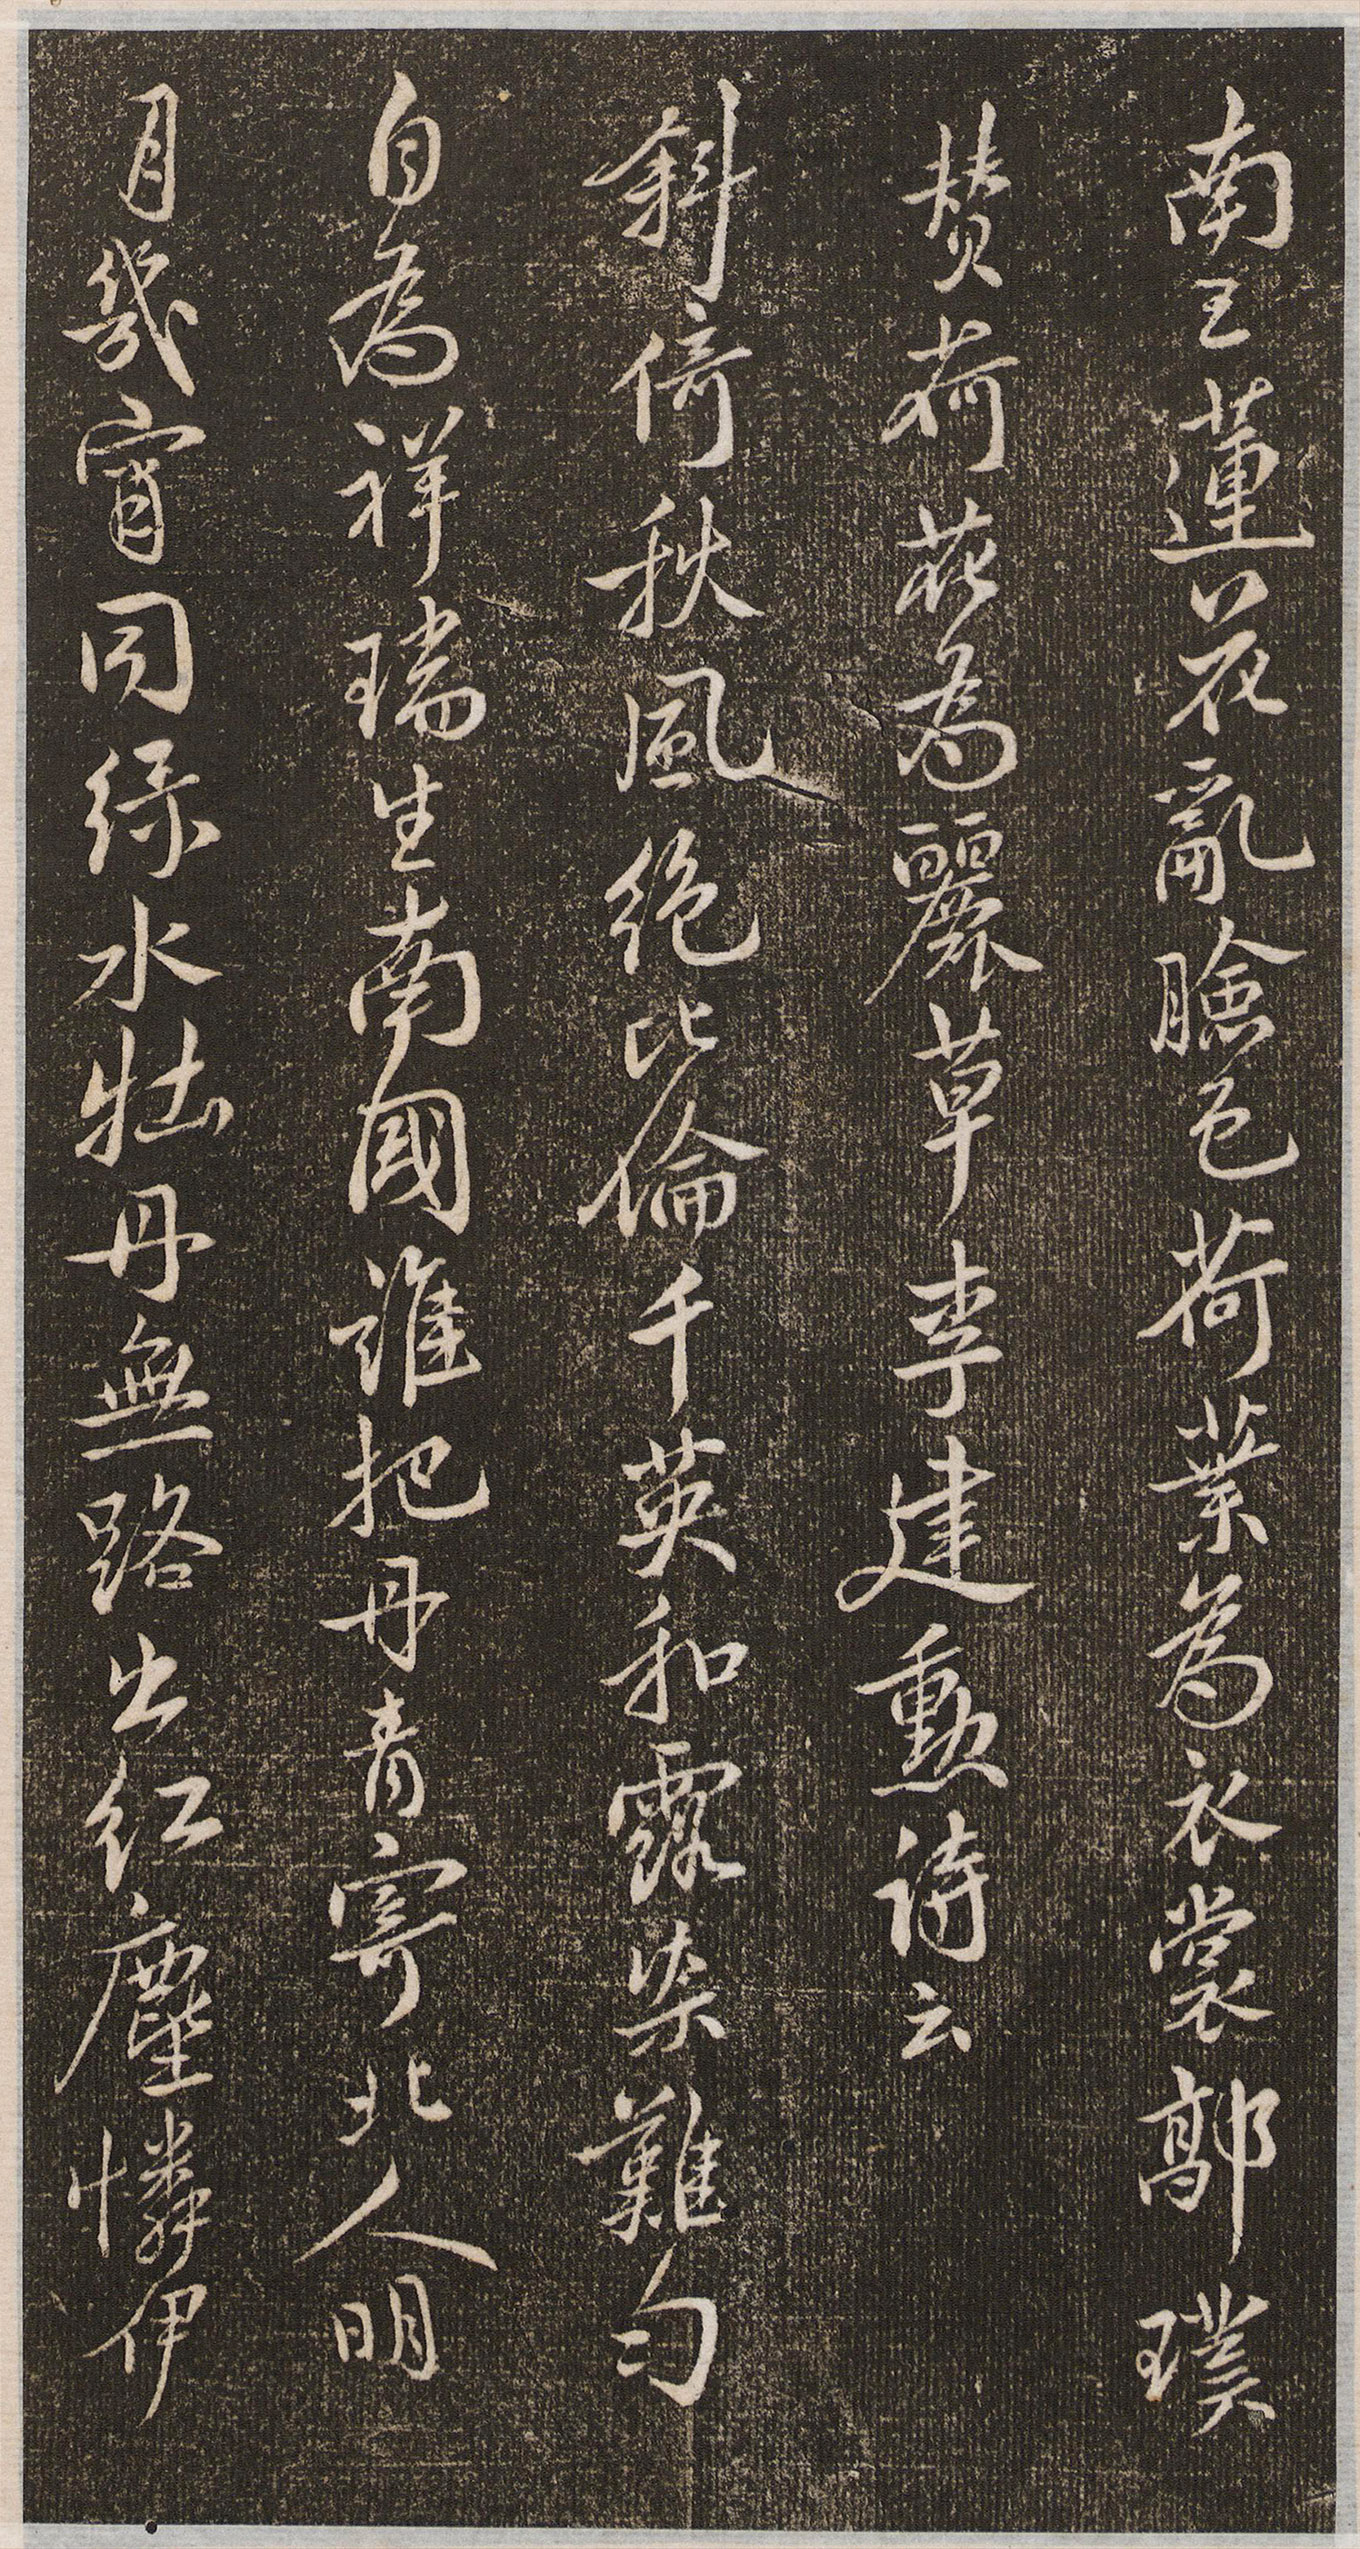 南王蓮花亂臉色荷葉為衣裳郭璞
賛荷花為麗草李建勳詩云
斜倚秋風絶比倫千英和露染難勻
自為祥瑞生南國誰把丹青寄北人明
月幾宵同緑水牡丹無路出紅塵憐伊